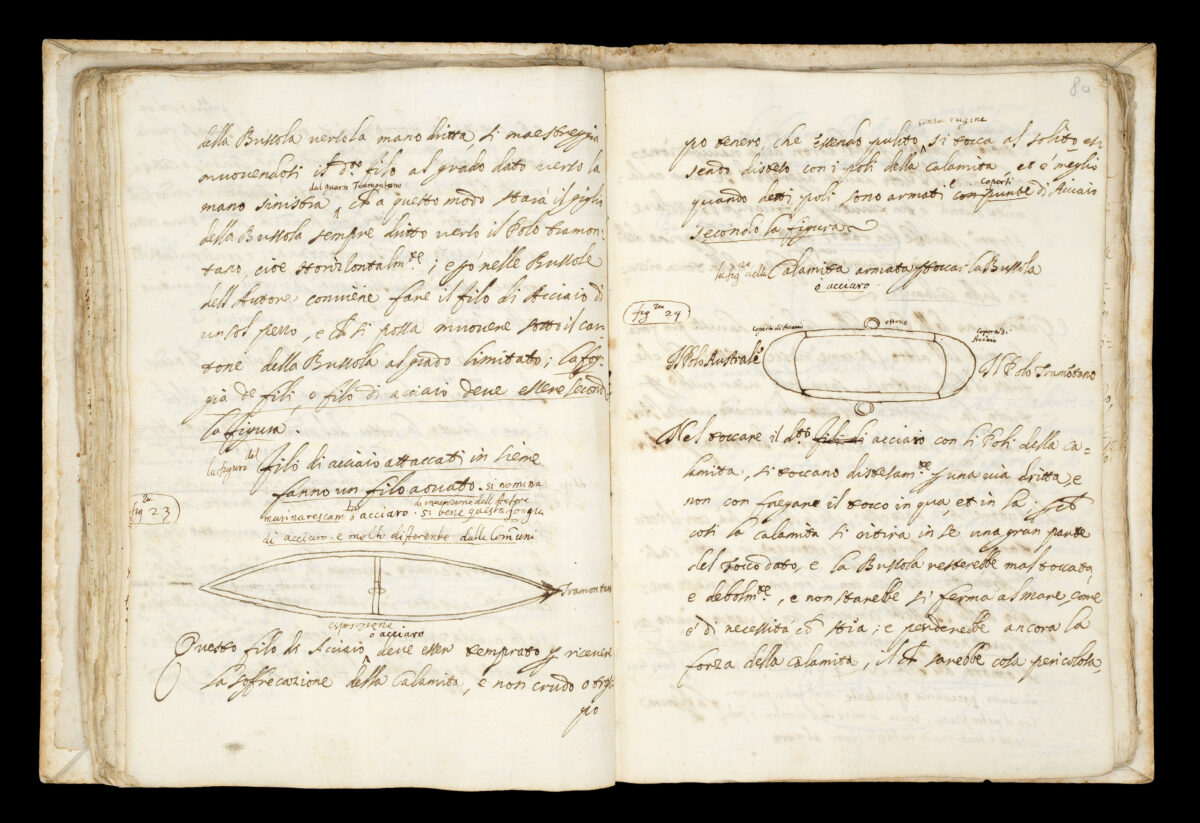 della Bussola verso la mano dritta, si maestreggia
muovendosi il dto filo al grado dato verso la
dal quarto Tramontano
mano sinistra, et a questo modo starà il giglio
della Bussola sempre dritto verso il Polo tramon-
tano, cioè Horizontalmte; e pò nelle Bussole
dell'Autore conviene fare il filo di Acciaio di
un sol pezzo, e che si possa muovere sotto il car-
tone della Bussola al grado limitato; la fog-
gia de fili, o filo di acciaio deve essere secondo
la figura.
la figura del filo di acciaio attaccati insieme
fanno un filo aovato. si nomina
di invenzione dell Autore
marinarescamte acciaro. si bene questa foggia
di acciaro e molto differente dalli Comuni
figra 23
Tramontana
o acciaro
Questo filo di Acciaio deve esser temprato per ricevere
la della Calamita, e non crudo o trop-
po
80
senza rugine
po tenero, che essendo pulito, si tocca al solito es-
sendo disteso con i poli della Calamita et è meglio
coperti
quando detti poli sono armati e congiunte di Acciaio
secondo la figura
la figra della Calamita armata p toccar la Bussola
o acciaro.
figra 24
Coperto di Acciaio
ottone
Coperto di
Acciaio
Il Polo Australe
Il Polo Tramontano
Nel toccare il dto fili di acciaio con li Poli della Ca-
lamita, si toccano distesamte p una via dritta, e
non con fregare il tocco in qua, et in la; pchè
così la Calamita si ritira in se una gran parte
del tocco dato, e la Bussola resterebbe mal toccata,
e debolmte, e non starebbe sì ferma al mare, come
è di necessità che stia; e perderebbe ancora la
forza della Calamita, il che sarebbe cosa pericolosa,